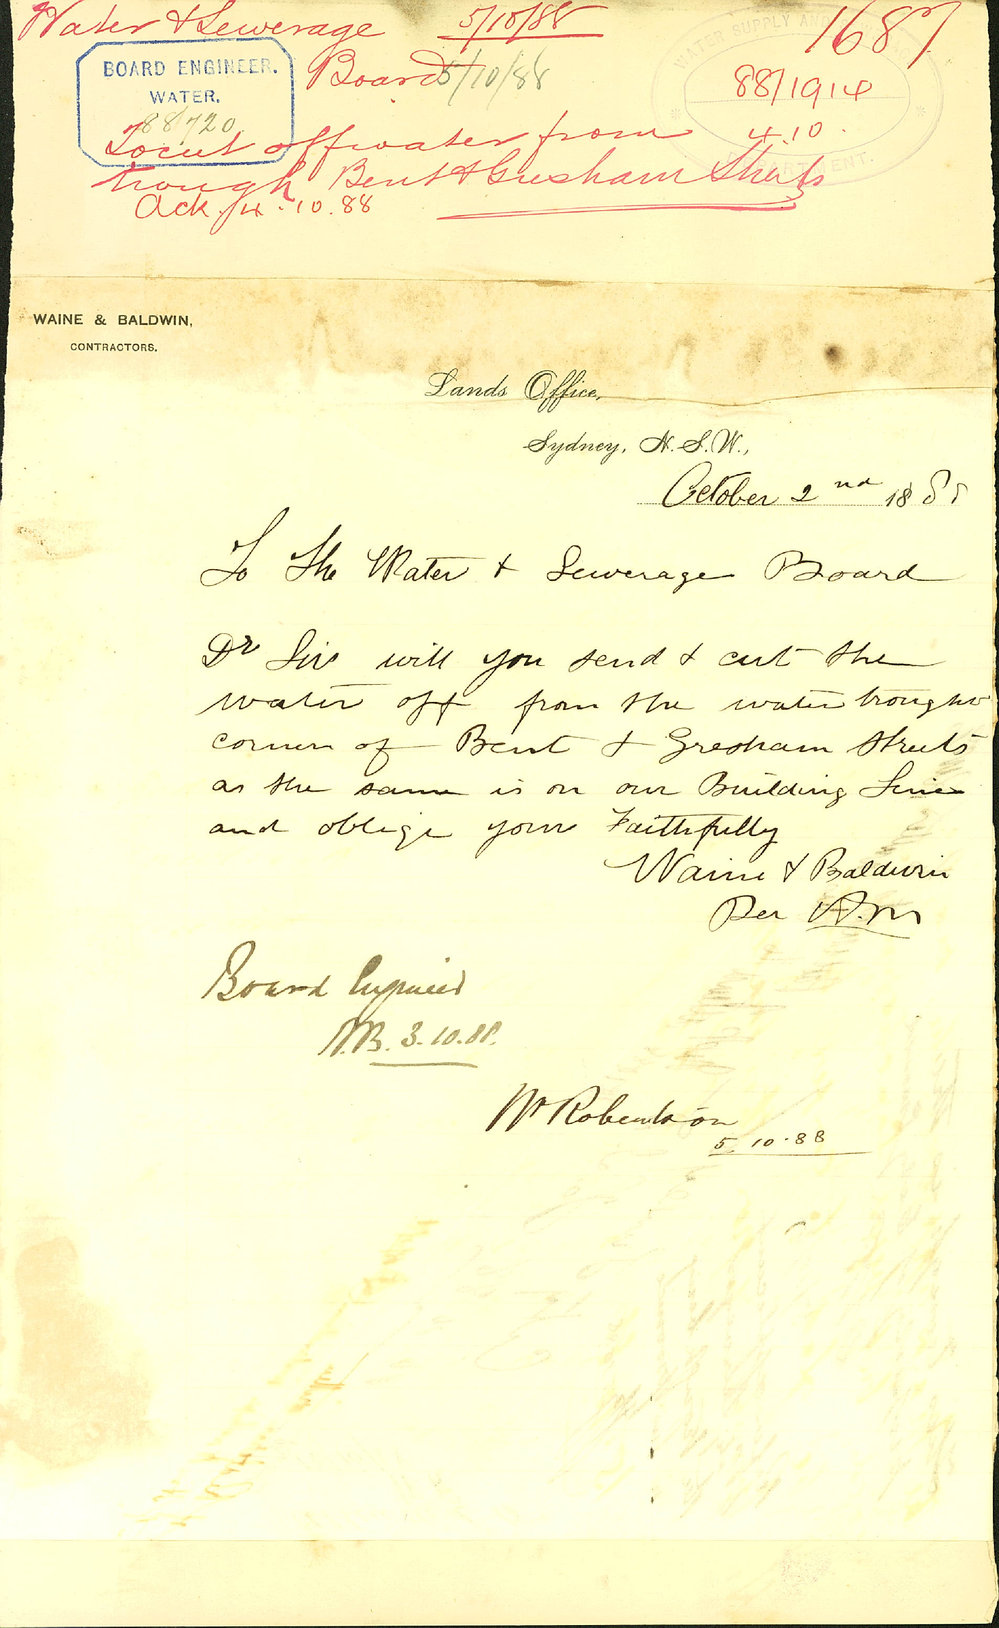 Water & Sewerage 5/10/88 1687
BOARD ENGINEER. Board 5/10/88 WATER SUPPLY AND
WATER. 88/1914
88/720
To cut off water from 4.10.
trough Bent & Gresham Streets DEPARTMENT
Ack. 4.10.88
WAINE & BALDWIN,
CONTRACTORS.
Lands Office,
Sydney, N.S.W.,
October 2nd 1888
To The Water & Sewerage Board
Dr Sir will you send & cut the
water off from the water trought
corner of Bent & Gresham Streets
as the same is on our Building Line
and oblige your Faithfully
Waine & Baldwin
Per A.M
Board Engineer
3.10.88.
Mr Robertson
5.10.88